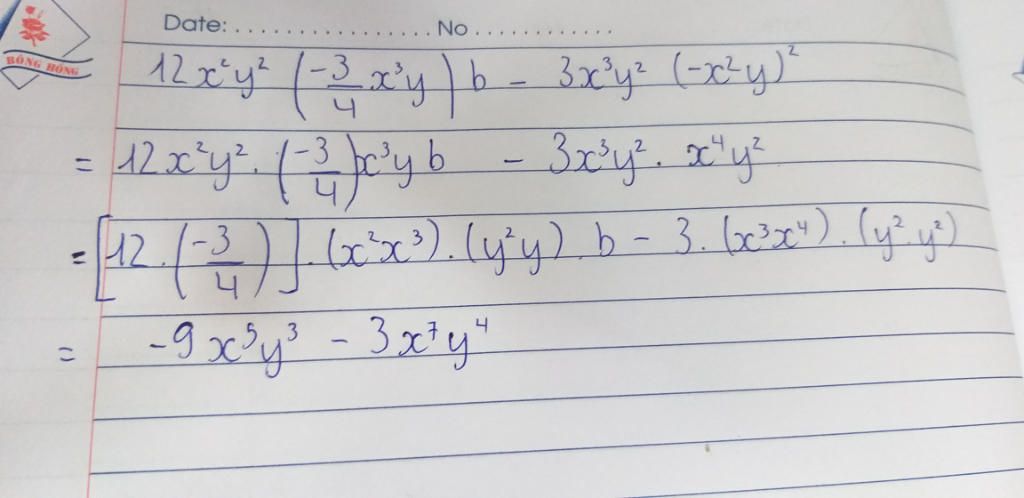 BÔNG HỒNG
Date: ................ No ............
12x²y² (-3/4 x³y) b - 3x³y² (-x²y)²
= 12x²y² . (-3/4) x³y b - 3x³y² . x⁴y²
= [12 . (-3/4)] . (x²x³) . (y²y) . b - 3 . (x³x⁴) . (y².y²)
= -9x⁵y³ - 3x⁷y⁴